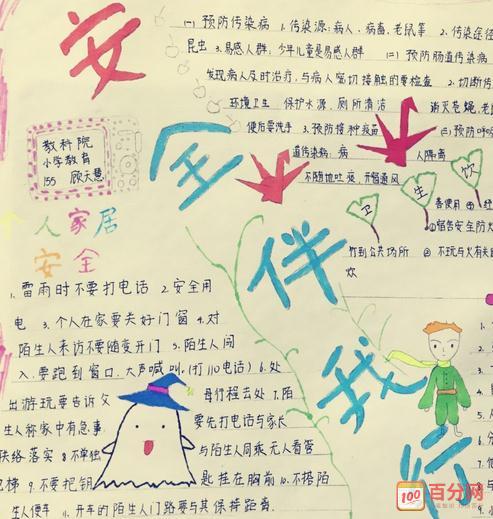 安全伴我行
(一) 预防传染病 1.传染源:病人、病毒、老鼠等 2.传染途径
昆虫 3.易感人群:少年儿童是易感人群 (二) 预防肠道传染病
发现病人及时治疗,与病人密切接触的要检查 2.切断传
环境卫生 保护水源、厕所清洁 消灭苍蝇、老
便后要洗手 3.预防接种疫苗 (三)预防呼
道传染病:病 人隔离
不随地吐痰,开窗通风
卫生饮
教科院
小学教育
155 顾天慧
个人家居
安全
1.雷雨时不要打电话 2.安全用
电 3.个人在家要关好门窗 4.对
陌生人来访不要随便开门 5.陌生人闯
入,要跑到窗口,大声喊叫(打110电话) 6.外
出游玩要告诉父 母行程去处 7.陌
生人称家中有急事 要先打电话与家长
联络落实 8.不单独 与陌生人同乘无人看管
电梯 9.不要把钥 匙挂在胸前 10.不搭陌
生人便车 11.开车的陌生人问路要与其保持距离.
竹到公共场所
不玩火有
100
百分网